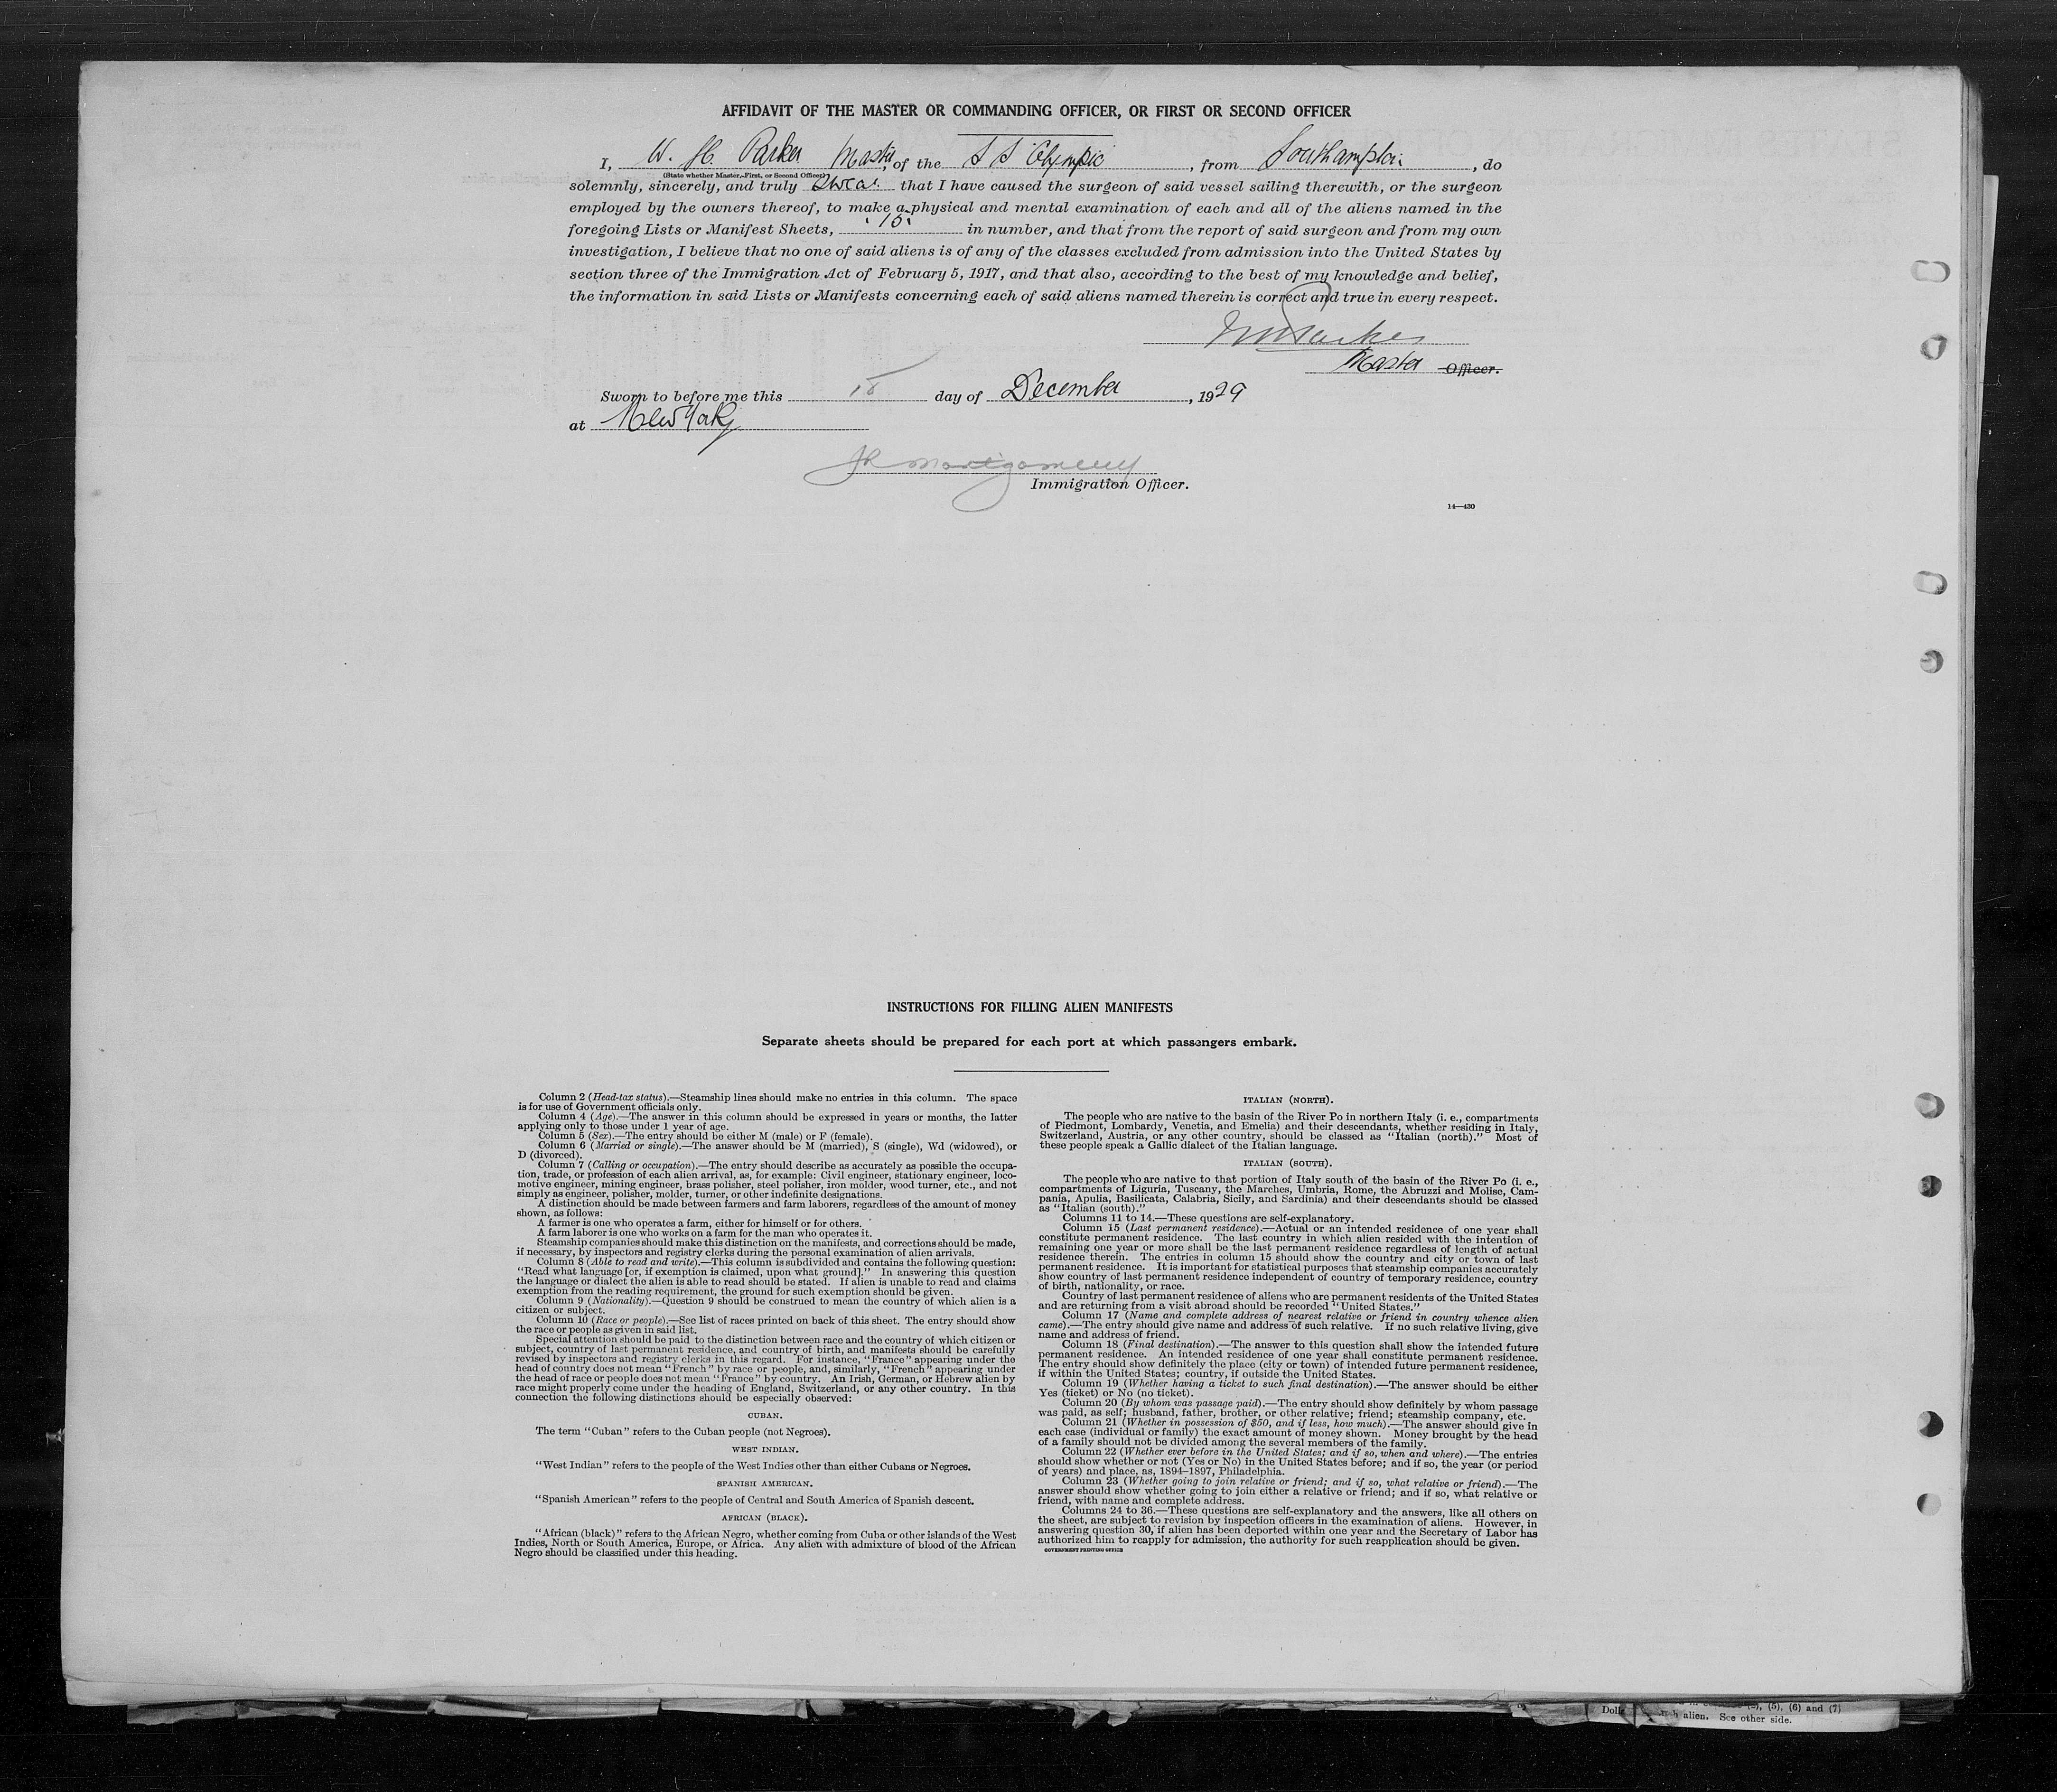 AFFIDAVIT OF THE MASTER OR COMMANDING OFFICER, OR FIRST OR SECOND OFFICER
I, W. H. Parker Master, of the S S Olympic, from Southampton, do
(State whether Master, First, or Second Officer)
solemnly, sincerely, and truly swear that I have caused the surgeon of said vessel sailing therewith, or the surgeon
employed by the owners thereof, to make a physical and mental examination of each and all of the aliens named in the
foregoing Lists or Manifest Sheets, in number, and that from the report of said surgeon and from my own
investigation, I believe that no one of said aliens is of any of the classes excluded from admission into the United States by
section three of the Immigration Act of February 5, 1917, and that also, according to the best of my knowledge and belief,
the information in said Lists or Manifests concerning each of said aliens named therein is correct and true in every respect.
WH Parker
Master Officer.
Sworn to before me this day of December, 1929
at New York
Montgomery
Immigration Officer.
14—430
INSTRUCTIONS FOR FILLING ALIEN MANIFESTS
Separate sheets should be prepared for each port at which passengers embark.
Column 2 (Head-tax status).—Steamship lines should make no entries in this column. The space
is for use of Government officials only.
Column 4 (Age).—The answer in this column should be expressed in years or months, the latter
applying only to those under 1 year of age.
Column 5 (Sex).—The entry should be either M (male) or F (female).
Column 6 (Married or single).—The answer should be M (married), S (single), Wd (widowed), or
D (divorced).
Column 7 (Calling or occupation).—The entry should describe as accurately as possible the occupa-
tion, trade, or profession of each alien arrival, as, for example: Civil engineer, stationary engineer, loco-
motive engineer, mining engineer, brass polisher, steel polisher, iron molder, wood turner, etc., and not
simply as engineer, polisher, molder, turner, or other indefinite designations.
A distinction should be made between farmers and farm laborers, regardless of the amount of money
shown, as follows:
A farmer is one who operates a farm, either for himself or for others.
A farm laborer is one who works on a farm for the man who operates it.
Steamship companies should make this distinction on the manifests, and corrections should be made,
if necessary, by inspectors and registry clerks during the personal examination of alien arrivals.
Column 8 (Able to read and write).—This column is subdivided and contains the following question:
"Read what language [or, if exemption is claimed, upon what ground]." In answering this question
the language or dialect the alien is able to read should be stated. If alien is unable to read and claims
exemption from the reading requirement, the ground for such exemption should be given.
Column 9 (Nationality).—Question 9 should be construed to mean the country of which alien is a
citizen or subject.
Column 10 (Race or people).—See list of races printed on back of this sheet. The entry should show
the race or people as given in said list.
Special attention should be paid to the distinction between race and the country of which citizen or
subject, country of last permanent residence, and country of birth, and manifests should be carefully
revised by inspectors and registry clerks in this regard. For instance, "France" appearing under the
head of country does not mean "French" by race or people, and, similarly, "French" appearing under
the head of race or people does not mean "France" by country. An Irish, German, or Hebrew alien by
race might properly come under the heading of England, Switzerland, or any other country. In this
connection the following distinctions should be especially observed:
CUBAN.
The term "Cuban" refers to the Cuban people (not Negroes).
WEST INDIAN.
"West Indian" refers to the people of the West Indies other than either Cubans or Negroes.
SPANISH AMERICAN.
"Spanish American" refers to the people of Central and South America of Spanish descent.
AFRICAN (BLACK).
"African (black)" refers to the African Negro, whether coming from Cuba or other islands of the West
Indies, North or South America, Europe, or Africa. Any alien with admixture of blood of the African
Negro should be classified under this heading.
ITALIAN (NORTH).
The people who are native to the basin of the River Po in northern Italy (i. e., compartments
of Piedmont, Lombardy, Venetia, and Emelia) and their descendants, whether residing in Italy,
Switzerland, Austria, or any other country, should be classed as "Italian (north)." Most of
these people speak a Gallic dialect of the Italian language.
ITALIAN (SOUTH).
The people who are native to that portion of Italy south of the basin of the River Po (i. e.,
compartments of Liguria, Tuscany, the Marches, Umbria, Rome, the Abruzzi and Molise, Cam-
pania, Apulia, Basilicata, Calabria, Sicily, and Sardinia) and their descendants should be classed
as "Italian (south)."
Columns 11 to 14.—These questions are self-explanatory.
Column 15 (Last permanent residence).—Actual or an intended residence of one year shall
constitute permanent residence. The last country in which alien resided with the intention of
remaining one year or more shall be the last permanent residence regardless of length of actual
residence therein. The entries in column 15 should show the country and city or town of last
permanent residence. It is important for statistical purposes that steamship companies accurately
show country of last permanent residence independent of country of temporary residence, country
of birth, nationality, or race.
Country of last permanent residence of aliens who are permanent residents of the United States
and are returning from a visit abroad should be recorded "United States."
Column 17 (Name and complete address of nearest relative or friend in country whence alien
came).—The entry should give name and address of such relative. If no such relative living, give
name and address of friend.
Column 18 (Final destination).—The answer to this question shall show the intended future
permanent residence. An intended residence of one year shall constitute permanent residence.
The entry should show definitely the place (city or town) of intended future permanent residence,
if within the United States; country, if outside the United States.
Column 19 (Whether having a ticket to such final destination).—The answer should be either
Yes (ticket) or No (no ticket).
Column 20 (By whom was passage paid).—The entry should show definitely by whom passage
was paid, as self; husband, father, brother, or other relative; friend; steamship company, etc.
Column 21 (Whether in possession of $50, and if less, how much).—The answer should give in
each case (individual or family) the exact amount of money shown. Money brought by the head
of a family should not be divided among the several members of the family.
Column 22 (Whether ever before in the United States; and if so, when and where).—The entries
should show whether or not (Yes or No) in the United States before; and if so, the year (or period
of years) and place, as, 1894–1897, Philadelphia.
Column 23 (Whether going to join relative or friend; and if so, what relative or friend).—The
answer should show whether going to join either a relative or friend; and if so, what relative or
friend, with name and complete address.
Columns 24 to 36.—These questions are self-explanatory and the answers, like all others on
the sheet, are subject to revision by inspection officers in the examination of aliens. However, in
answering question 30, if alien has been deported within one year and the Secretary of Labor has
authorized him to reapply for admission, the authority for such reapplication should be given.
GOVERNMENT PRINTING OFFICE
(5), (6) and (7)
alien. See other side.